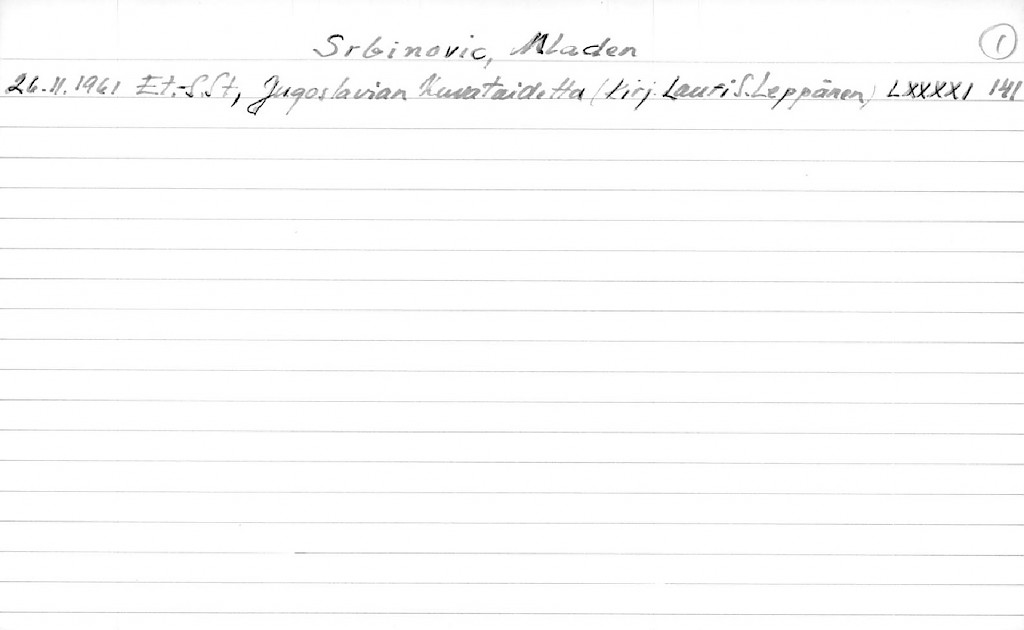 Srbinovic, Mladen 1
26.11.1961 Et.-S.St, Jugoslavian Kuvataidetta (Kirj. Lauri S. Leppänen) LXXXXI 141